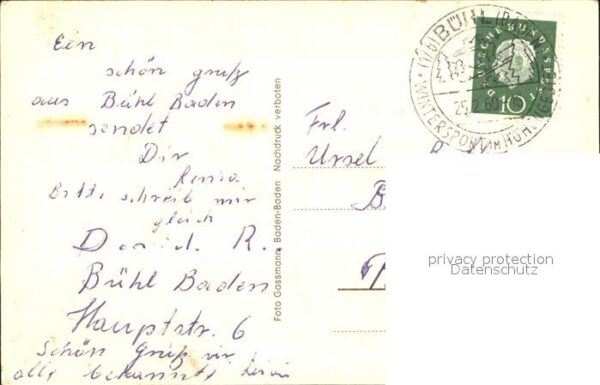 Ein
schön gruß
aus Bühl Baden
sendet
Dir
Bitte schreib mir
gleich
R.
Bühl Baden
Hauptstr. 6
Schön Gruß
alle bekannte
Foto Gassmann, Baden-Baden Nachdruck verboten
Frl.
Ursel
B
(17b) BÜHL (BADEN)
WINTERSPORT IM HÖHEN
DEUTSCHE BUNDESPOST
10
privacy protection
Datenschutz